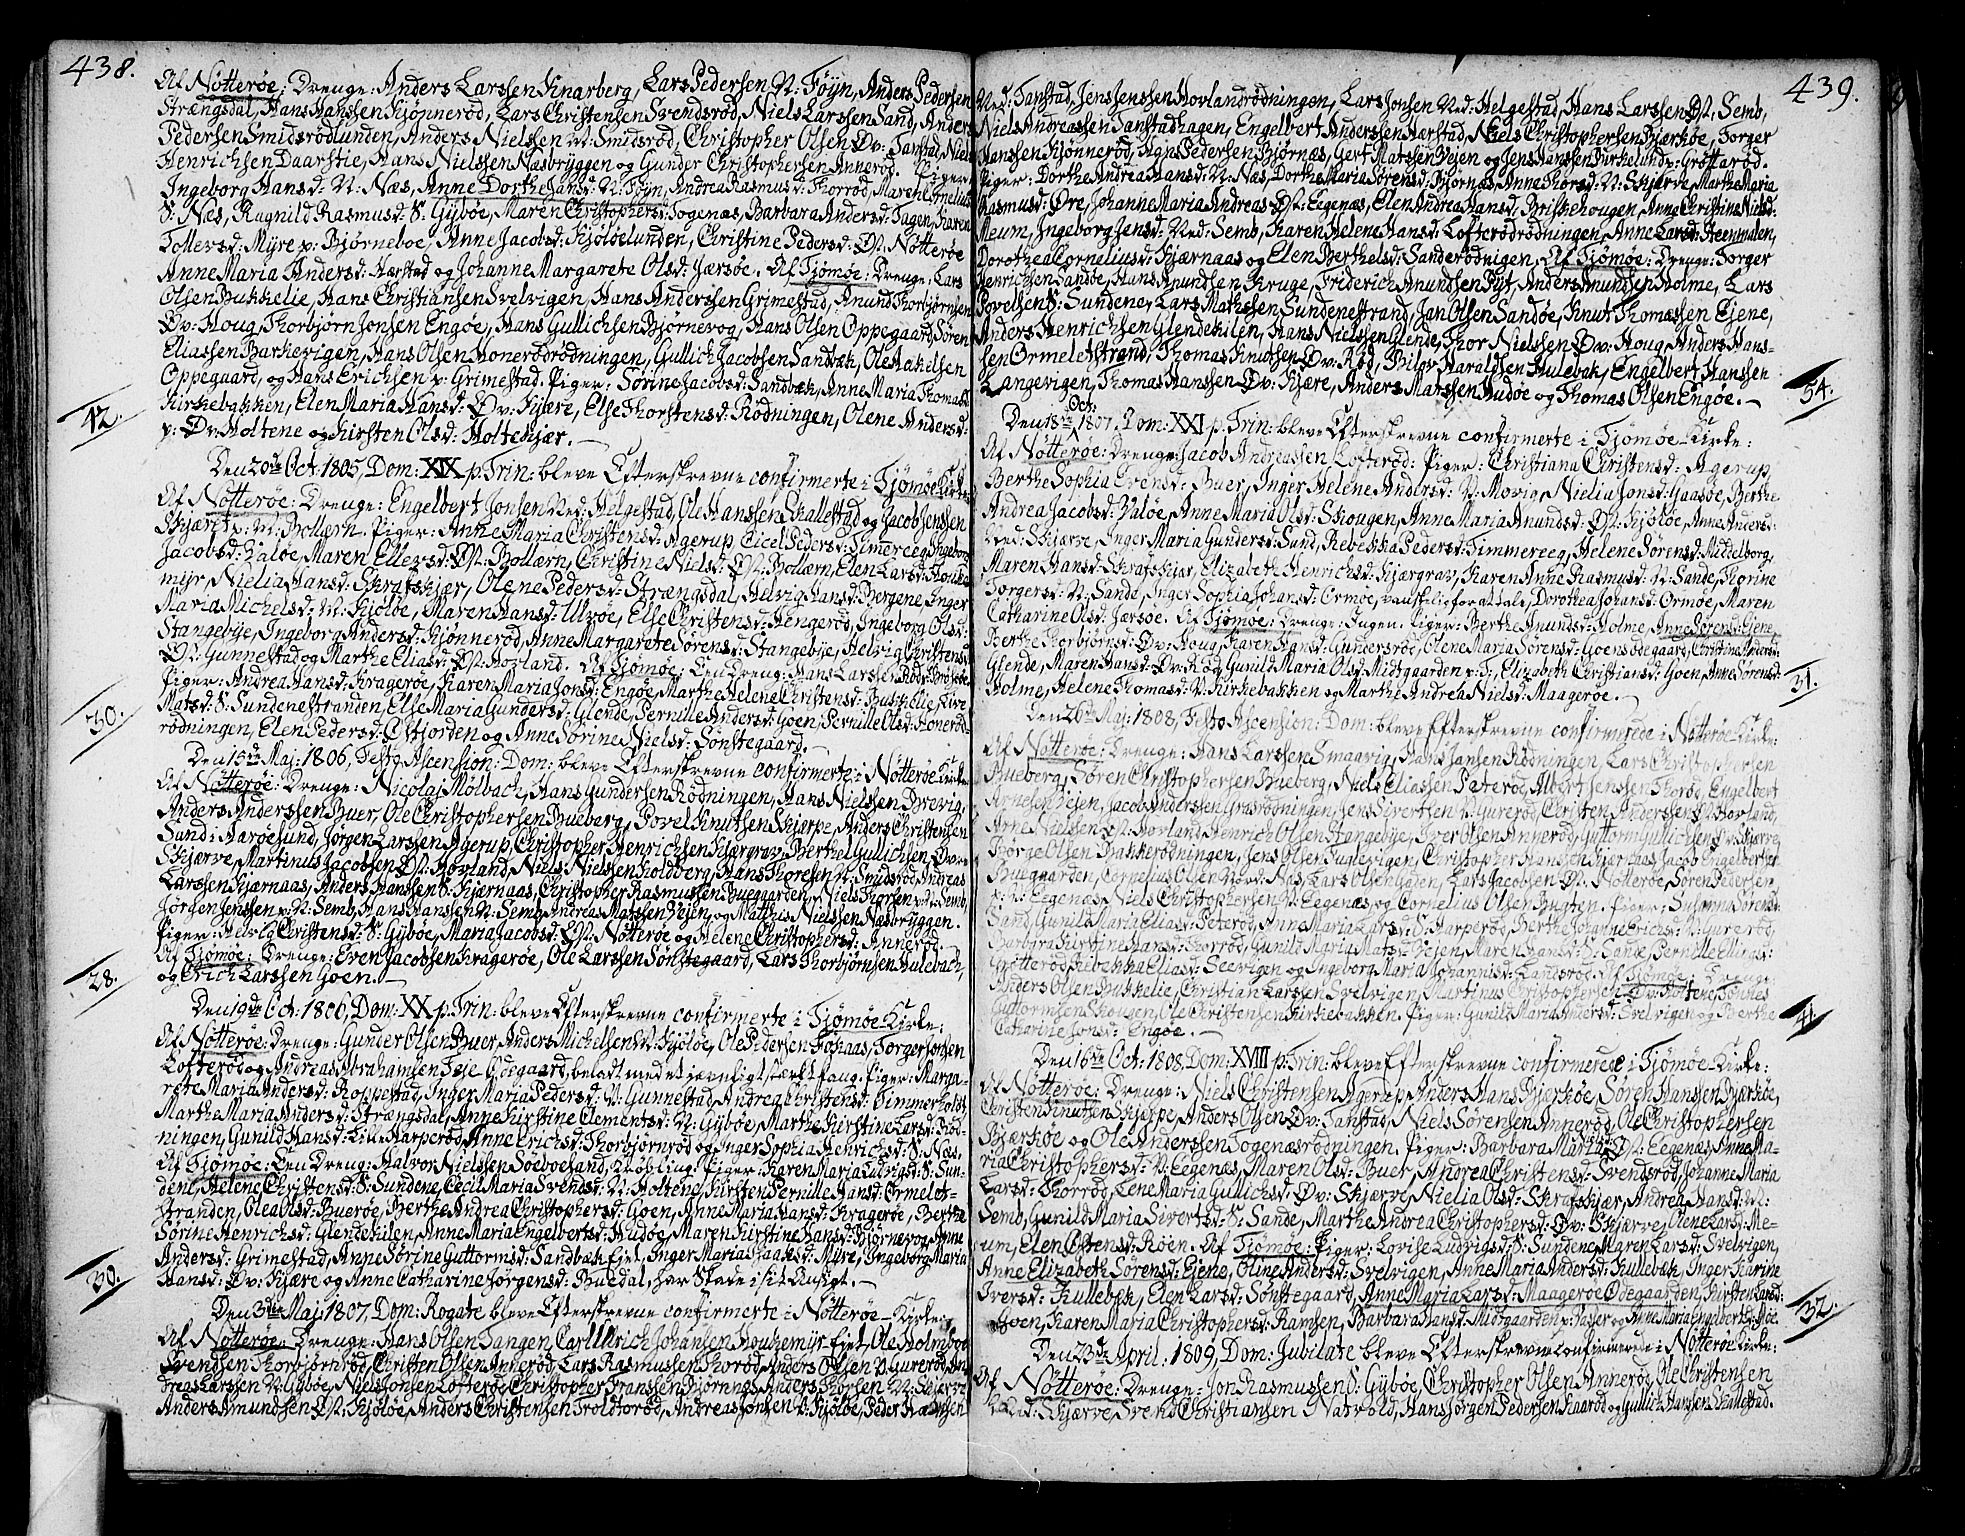 438.
Af Nötterøe: Drenge: Anders Larssen Knarberg, Lars Pedersen N: Föyn, Anders Pedersen
Strængsdal, Hans Hanssen Kjøpnerød, Lars Christensen Svendsrød, Niels Larssen Sand, Anders
Pedersen Smidsrödlunden, Anders Nielssen N: Smidsröd, Christopher Olsen Øv: Tanstad, Niels
Henrichsen Daarstie, Hans Nielssen Næsbryggen og Gunder Christophersen Anneröd. Piger:
Ingeborg Hansd: N: Næs, Anne Dorthe Jansd: N: Föyn, Andrea Rasmusd: Thorröd, Maren Corneliusd:
S: Næs, Ragnild Rasmusd: S: Gyböe, Maren Christophersd: Togenæs, Barbara Andersd: Tagen, Karen
Tollersd: Myre p: Bjørneboe, Anne Jacobsd: Kjöldelunden, Christine Pedersd: Øst: Nötteröe
Anne Maria Andersd: Hærstad og Johanne Margarete Olsd: Jærsöe. Af Tjömöe: Drenge: Lars
Olsen Bukkelie, Hans Christiansen Svelvigen, Hans Anderssen Grimestad, Anund Thorbjørnsen
Øv: Houg, Thorbjørn Jonsen Engöe, Hans Gullichsen Bjørnevog, Hans Olsen Oppegaard, Sören
Eliassen Barkevigen, Hans Olsen Honerödrödningen, Gullich Jacobsen Sandbæk, Ole Hakelsen
Oppegaard, og Hans Erichsen p: Grimestad. Piger: Sörine Jacobsd: Sandbæk, Anne Maria Thomasd:
Kirkebakken, Elen Maria Hansd: Øv: Kjære, Else Thorstensd: Rödningen, Olene Andersd:
p: Øv: Holtene og Kirsten Olsd: Holtekjær.
42.
Den 20de Oct: 1805, Dom: XIX p: Trin: bleve Efterskrevne confirmerte i Tjömöe Kirke:
Af Nötteröe: Drenge: Engelbert Jonsen Ned: Helgestad, Ole Hanssen Skallestad og Jacob Jenssen
Skjæret p: N: Bollern. Piger: Anne Maria Christensd: Agerup, Cicel Pedersd: Timereeg, Ingeborg
Jacobsd: Valöe, Maren Ellevsd: Øst: Bollærn, Christine Nielsd: Øst: Bollærn, Elen Larsd: Houke-
myr, Nielia Hansd: Skrafskjær, Olene Pedersd: Strængsdal, Helvig Hansd: Bergene, Inger
Maria Michelsd: N: Kjölöe, Maren Hansd: Ulvöe, Else Christensd: Hengeröd, Ingeborg Olsd:
Stangebye, Ingeborg Andersd: Kjønneröd, Anne Margarete Sörensd: Stangebye, Helvig Christensd:
Øst: Gunnestad og Marthe Eliasd: Øst: Hovland. Af Tjömöe: Een Dreng: Hans Larssen
Piger: Andrea Hansd: Krageröe, Karen Maria Jonsd: Engöe, Marthe Helene Christensd: Bukkelie,
Matsd: S: Sundenestranden, Else Maria Gundersd: Glende, Pernille Andersd: Goen, Pernille Olsd: Honeröd-
rödningen, Elen Pedersd: Østjorden og Anne Sörine Nielsd: Sönstegaard.
30.
Den 15de Maj: 1806, Festo Ascension: Dom: bleve Efterskrevne confirmerte i Nötteröe Kirke
Af Nötteröe: Drenge: Nicolaj Mölbach, Hans Gundersen Rödningen, Hans Nielssen Brevig,
Anders Anderssen Buer, Ole Christophersen Bueberg, Povel Knutsen Skjerpe, Anders Christensen
Sund i Aaröesund, Jörgen Larssen Agerup, Christopher Henrichsen Kjærgrav, Berthel Gullichsen Øv:
Skjærve, Martinus Jacobsen Øst: Hovland, Niels Nielssen Holdberg, Hans Thoresen N: Smidsröd, Andreas
Larssen Kjærnaas, Anders Hanssen S: Kjærnaas, Christopher Rasmussen Buegaarden, Niels Thorsen p: N: Semb,
Jörgen Jenssen p: N: Semb, Hans Hanssen N: Semb, Andreas Matssen Vejen, og Matthis Nielssen Næsbryggen.
Piger: Helvig Christensd: S: Gyböe, Maria Jacobsd: Øst: Nötteröe og Helene Christophersd: Anneröd.
Af Tjömöe: Drenge: Even Jacobssen Krageröe, Ole Larssen Sönstegaard, Lars Thorbjørnsen Hulebach,
og Erich Larssen Goen.
28.
Den 19de Oct: 1806, Dom: XX p: Trin: bleve Efterskrevne confirmerte i Tjömöe Kirke:
Af Nötteröe: Drenge: Gunder Olsen Buer, Anders Michelsen N: Kjölöe, Ole Pedersen Fohaas, Torger Jonsen
Lofteröd og Andreas Abrahamsen Feste Ødegaard, beladt med et jævnligt stærkt fang. Piger: Marga-
rete Maria Andersd: Roppestad, Inger Maria Pedersd: N: Gunnestad, Andrea Christensd: Timmerholdt,
Marthe Maria Andersd: Strængsdal, Anne Kirstine Clementsd: N: Gyböe, Marthe Kirstine Larsd: Röd-
ningen, Gunild Hansd: Lille Harperöd, Anne Erichsd: Thorbjørnröd og Inger Sophia Henrichsd: S: Næs.
Af Tjömöe: Een Dreng: Halvor Nielssen Söeboeland, Kröbling. Piger: Karen Maria Ludvigsd: S: Sun-
dene, Helene Christensd: S: Sundene, Cecil Maria Svendsd: N: Holtene, Kirsten Pernille Hansd: Ormelet-
stranden, Olea Olsd: Bueröe, Berthe Andrea Christophersd: Goen, Anne Maria Hansd: Krageröe, Berthe
Sörine Henrichsd: Glendekilen, Anne Maria Engelbertsd: Hudöe, Maren Kirstine Hansd: Bjørnevog, Anne
Andersd: Grimestad, Anne Sörine Guttormsd: Sandbæk Ejet, Inger Maria Isaaksd: Myre, Ingeborg Maria
Hansd: Øv: Kjære og Anne Catharine Jörgensd: Buedal, har Skade i sit Ansigt.
30.
Den 3die Maj: 1807, Dom: Rogate bleve Efterskrevne confirmerte i Nötteröe Kirke:
Af Nötteröe: Drenge: Hans Olsen Tangen, Carl Ulrich Johansen Houkemyr Ejet, Ole Holmboe
Svendsen Thorbjørnröd, Christen Olsen Anneröd, Lars Rasmussen Thorröd, Anders Olsen N: Gureröd, An-
dreas Larssen N: Gyböe, Niels Jonsen Lofteröd, Christopher Franssen Bjørnæs, Anders Thorsen N: Skjerve
Anders Amundsen Øst: Kjölöe, Anders Christensen Troldtoröd, Andreas Jonsen N: Kjölöe, Peder
439.
Ned: Tanstad, Jens Jenssen Hovlandrödningen, Lars Jonsen Ned: Helgestad, Hans Larssen Øst: Semb,
Niels Andreassen Tanstadhagen, Engelbert Anderssen Hærstad, Niels Christophersen Bjerköe, Torger
Hanssen Kjönneröd, Hans Pedersen Bjørnæs, Gert Matssen Vejen og Jens Hanssen Birkelund p: Grötteröd.
Piger: Dorthe Andrea Hansd: N: Næs, Dorthe Maria Sörensd: Bjørnæs, Anne Thorsd: N: Skjærve, Marthe Maria
Rasmusd: Øre, Johanne Maria Andreasd: Øst: Eegenæs, Elen Andrea Hansd: Briskehougen, Anne Christine Nielsd:
Meum, Ingeborg Jensd: Ned: Semb, Karen Helene Hansd: Lofterödrödningen, Anne Larsd: Heenmalen,
Dorothea Corneliusd: Kjærnaas og Elen Berthelsd: Sanderödnigen. Af Tjömöe: Drenge: Torger
Henrichsen Sandöe, Hans Anundsen Kruge, Friderich Anundsen Pyt, Anders Amundsen Holme, Lars
Povelsen S: Sundene, Lars Mathssen Sundenestrand, Jan Olsen Sandöe, Knut Thomæssen Ejene,
Anders Henrichsen Glendekilen, Hans Nielssen Glende, Thor Nielssen Øv: Houg, Anders Hans-
sen Ormeletstrand, Thomas Knutsen Øv: Röd, Philop Haraldsen Hulebak, Engelbert Hanssen
Langevigen, Thomas Hanssen Øv: Kjære, Anders Marssen Hudöe og Thomas Olsen Engöe.
54.
Den 18de Oct: 1807, Dom: XXI p: Trin: bleve Efterskrevne confirmerte i Tjömöe Kirke:
Af Nötteröe: Drenge: Jacob Andreassen Lofteröd: Piger: Christiana Christensd: Agerup,
Berthe Sophia Evensd: Buer, Inger Helene Andersd: N: Movig, Nielia Jonsd: Gaasöe, Berthe
Andrea Jacobsd: Valöe, Anne Maria Olsd: Skougen, Anne Maria Anundsd: Øst: Kjölöe, Anne Andersd:
Ned: Skjærve, Inger Maria Gundersd: Sand, Rebekka Pedersd: Timmereeg, Helene Sörensd: Middelborg,
Maren Hansd: Skrafskjær, Elizabeth Henrichsd: Kjærgrav, Karen Anne Rasmusd: N: Sande, Thorine
Torgersd: N: Sande, Inger Sophia Johansd: Ormöe, vanskelig for at tale, Dorothea Johansd: Ormöe, Maren
Catharine Olsd: Jærsöe. Af Tjömöe: Drenge: Ingen. Piger: Berthe Anundsd: Holme, Anne Sörensd: Ejene,
Berthe Thorbjørnsd: Øv: Houg, Karen Hansd: Gundersröd, Olene Maria Sörensd: Goensödegaard, Christine Andersd:
Glende, Maren Hansd: Øv: Röd, Gunild Maria Olsd: Midtgaarden p: F:, Elizabeth Christiansd: Goen, Anne Sörensd:
Holme, Helene Thomasd: N: Kirkebakken og Marthe Andrea Nielsd: Maageröe.
31.
Den 26de Maj: 1808, Festo Ascension: Dom: bleve Efterskrevne confirmerede i Nötteröe Kirke:
Af Nötteröe: Drenge: Hans Larssen Smaavig, Hans Jansen Rödningen, Lars Christophersen
Bueberg, Sören Christophersen Bueberg, Niels Eliassen Peteröd, Albert Jenssen Thoröd, Engelbert
Arnesen Vejen, Jacob Andersen Grasrödningen, Jens Sivertsen N: Gureröd, Christen Anderssen Øst: Hovland,
Arne Nielssen Øst: Hovland, Henrich Olsen Stangebye, Iver Olsen Anneröd, Guttorm Gullichsen Øv: Skjærve,
Børge Olsen Bakkerödningen, Jens Olsen Fuglevigen, Christopher Hanssen Kjærnaas, Jacob Engelbertsen
Buegaarden, Cornelius Olsen Nord: Næs, Lars Olsen Gaden, Lars Jacobsen Øst: Nötteröe, Sören Pedersen
p: N: Eegenæs, Niels Christophersen N: Eegenæs og Cornelius Olsen Bugten. Piger: Susanna Sörensd:
Sand, Gunild Maria Eliasd: Peteröd, Anne Maria Larsd: S: Harperöd, Berthe Johanne Erichsd: N: Gureröd,
Barbara Kirstine Hansd: Thorröd, Gunild Maria Matsd: Vejen, Maren Hansd: S: Sande, Pernille Ellingsd:
Grötteröd, Rebekka Eliasd: Seevigen og Ingeborg Maria Johannisd: Landsröd. Af Tjömöe: Drenge:
Anders Olsen Bukkelie, Christian Larssen Svelvigen, Martinus Christophersen Øv: Holtene, Tönnes
Guttormsen Skougen, Ole Christensen Kirkebakken. Piger: Gunild Maria Andersd: Svelvigen og Berthe
Catharine Jonsd: Engöe.
41.
Den 16de Oct: 1808, Dom: XVIII p: Trin: bleve Efterskrevne confirmerede i Tjömöe Kirke:
Af Nötteröe: Drenge: Niels Christensen Agerup, Anders Hanssen Bjerköe, Sören Hanssen Bjerköe,
Christen Knutsen Skjerpe, Anders Olsen Øv: Tanstad, Niels Sörensen Anneröd, Ole Christophersen
Bjerköe og Ole Anderssen Togenæsrödningen. Piger: Barbara Øst: Eegenæs, Anne Ma-
ria Christophersd: N: Eegenæs, Maren Olsd: Buer, Andrea Christensd: Svendsröd, Johanne Maria
Larsd: Thorröd, Lene Maria Gullichsd: Øv: Skjærve, Nielia Olsd: Skrafskjær, Andrea Hansd: N:
Semb, Gunild Maria Sivertsd: S: Sande, Marthe Andrea Christophersd: Øv: Skjærve, Olene Larsd: Me-
um, Elen Ostensd: Röen. Af Tjömöe: Piger: Lovise Ludvigsd: S: Sundene, Maren Larsd: Svelvigen,
Anne Elizabeth Sörensd: Ejene, Oline Andersd: Svelvigen, Anne Maria Andersd: Hullebæk, Inger Karine
Iversd: Hullebæk, Elen Larsd: Sönstegaard, Anne Maria Larsd: Maageröe Ödegaarden, Kirsten Larsd:
Goen, Karen Maria Christophersd: Ramsen, Barbara Hansd: Midtgaarden p: Vasser og Anne Maria Engelbertsd: Møe.
32.
Den 23de April: 1809, Dom: Jubilate bleve Efterskrevne confirmerede i Nötteröe Kirke:
Af Nötteröe: Drenge: Jon Rasmussen S: Gyböe, Christopher Olsen Anneröd, Ole Christensen
Ned: Skjærve, Svend Christiansen Natvold, Hans Jörgen Pedersen Kaaröd og Gullich Hanssen Skallestad.